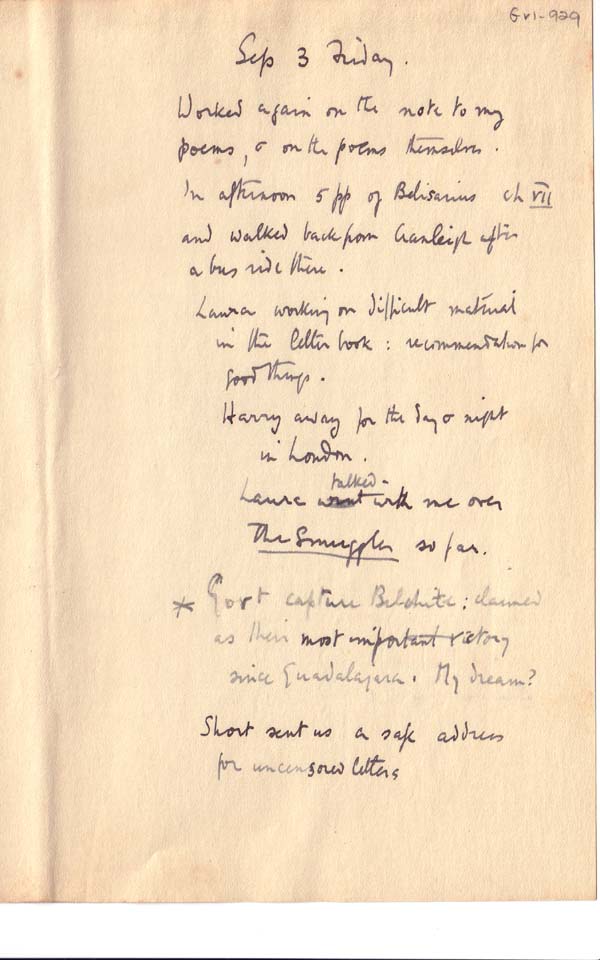 GVI-929
Sep 3 Friday.
Worked again on the note to my
poems, & on the poems themselves.
In afternoon 5 pp of Belisarius ch VII
and walked back from Cranleigh after
a bus ride there.
Laura working on difficult material
in the letter book: recommendation for
good things.
Harry away for the day & night
in London.
talked
Laura went with me over
The Smuggler so far.
* Govt capture Belchite; claimed
as their most important victory
since Guadalajara. My dream?
Short sent us a safe address
for uncensored letters